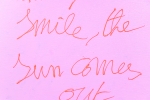 Smile, the
Sun comes
out